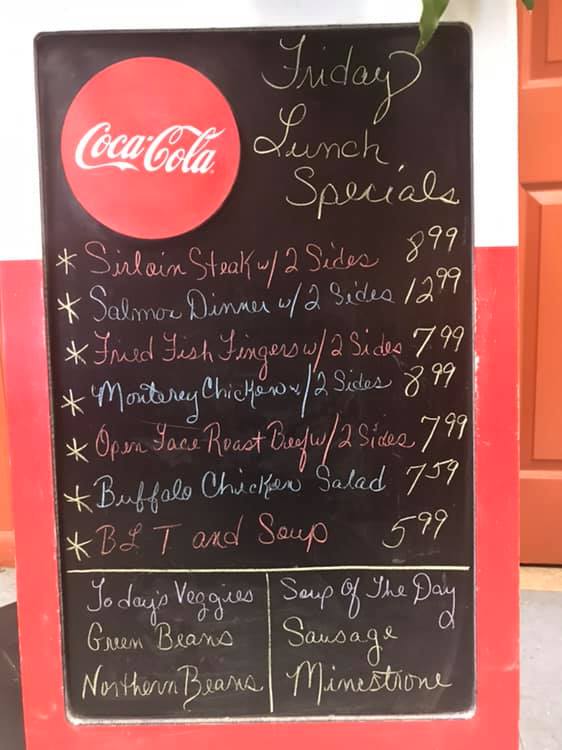 Coca-Cola
Friday
Lunch
Specials
* Sirloin Steak w/ 2 Sides 8 99
* Salmon Dinner w/ 2 Sides 12 99
* Fried Fish Fingers w/ 2 Sides 7 99
* Monterey Chicken w/ 2 Sides 8 99
* Open Face Roast Beef w/ 2 Sides 7 99
* Buffalo Chicken Salad 7 59
* BLT and Soup 5 99
Today's Veggies
Green Beans
Northern Beans
Soup Of The Day
Sausage
Minestrone